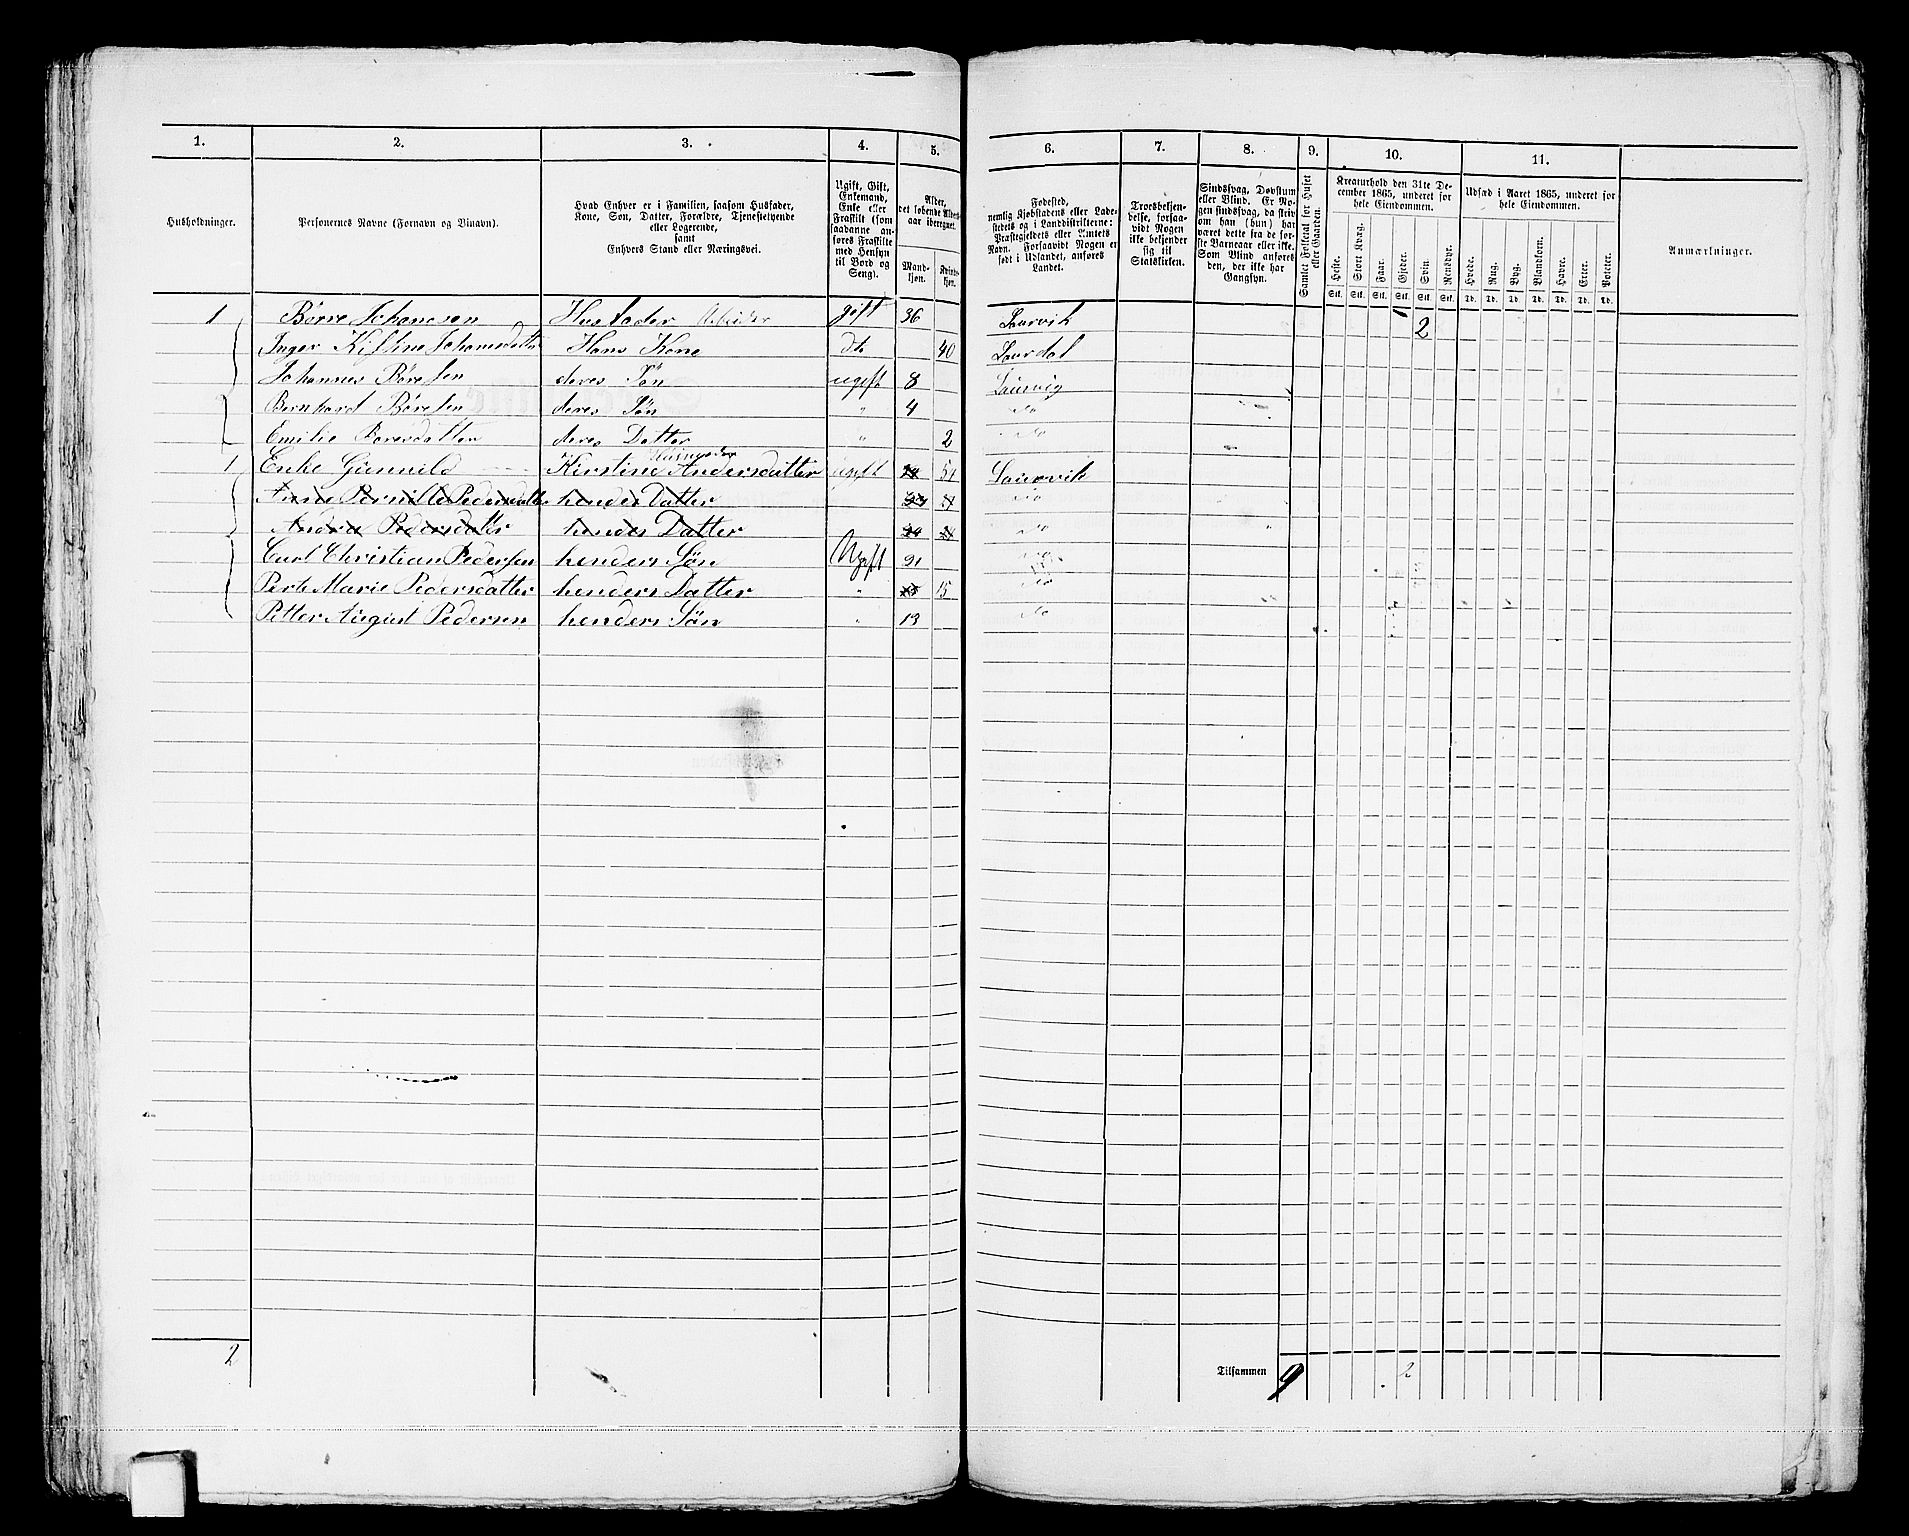 1. 2. 3. 4. 5. 6. 7. 8. 9. 10. 11.
Husholdninger.
Personernes Navne (Fornavn og Binavn).
Hvad Enhver er i Familien, saasom Husfader,
Kone, Søn, Datter, Forældre, Tjenestetyende
eller Logerende,
samt
Enhvers Stand eller Næringsvei.
Ugift, Gift,
Enkemand,
Enke eller
Fraskilt (som
saadanne an-
føres Fraskilte
med Hensyn
til Bord og
Seng).
Alder,
det løbende Alders-
aar iberegnet.
Mand-
kjøn.
Kvinde-
kjøn.
Fødested,
nemlig Kjøbstadens eller Lade-
stedets og i Landdistrikterne:
Præstegjeldets eller Amtets
Navn. Forsaavidt Nogen er
født i Udlandet, anføres
Landet.
Troesbekjen-
delse, forsaa-
vidt Nogen
ikke bekjender
sig til
Statskirken.
Sindssvag, Døvstum
eller Blind. Er No-
gen sindssvag, da skriv
om han (hun) har
været dette fra de før-
ste Barneaar eller ikke.
Som Blind anføres
den, der ikke har
Gangsyn.
Samlet Folketal for Huset
eller Gaarden.
Kreaturhold den 31te De-
cember 1865, underet for
hele Eiendommen.
Heste. Stort Kvæg. Faar. Gjeder. Svin. Rensdyr.
Stk. Stk. Stk. Stk. Stk. Stk.
Udsæd i Aaret 1865, underet for
hele Eiendommen.
Hvede. Rug. Byg. Blandkorn. Havre. Erter. Poteter.
Td. Td. Td. Td. Td. Td. Td.
Anmærkninger.
1 Børre Johansen Husfader Arbeider gift 36 Laurvik 2
Inger Kistine Johansdatter Hans Kone do 40 Laurdal
Johannes Børesen deres Søn ugift 8 Laurvig
Bernhard Børesen deres Søn " 4 do
Emilie Boresdatter deres Datter " 2 do
1 Enke Gunnild Kirstine Andersdatter ugift 51 Laurvik
Anne Pernille Pedersdatter hendes Datter do
Andrea Pedersdatter hendes Datter do
Carl Christian Pedersen henders Søn Ugift 21 do
Perte Marie Pedersdatter henders Datter " 15 do
Petter August Pedersen henders Søn " 13 do
2
Tilsammen 9 2